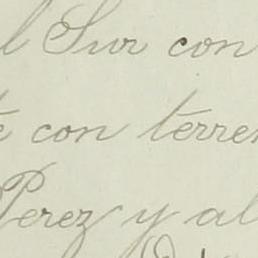 l Sur con
con terre
Perez y al